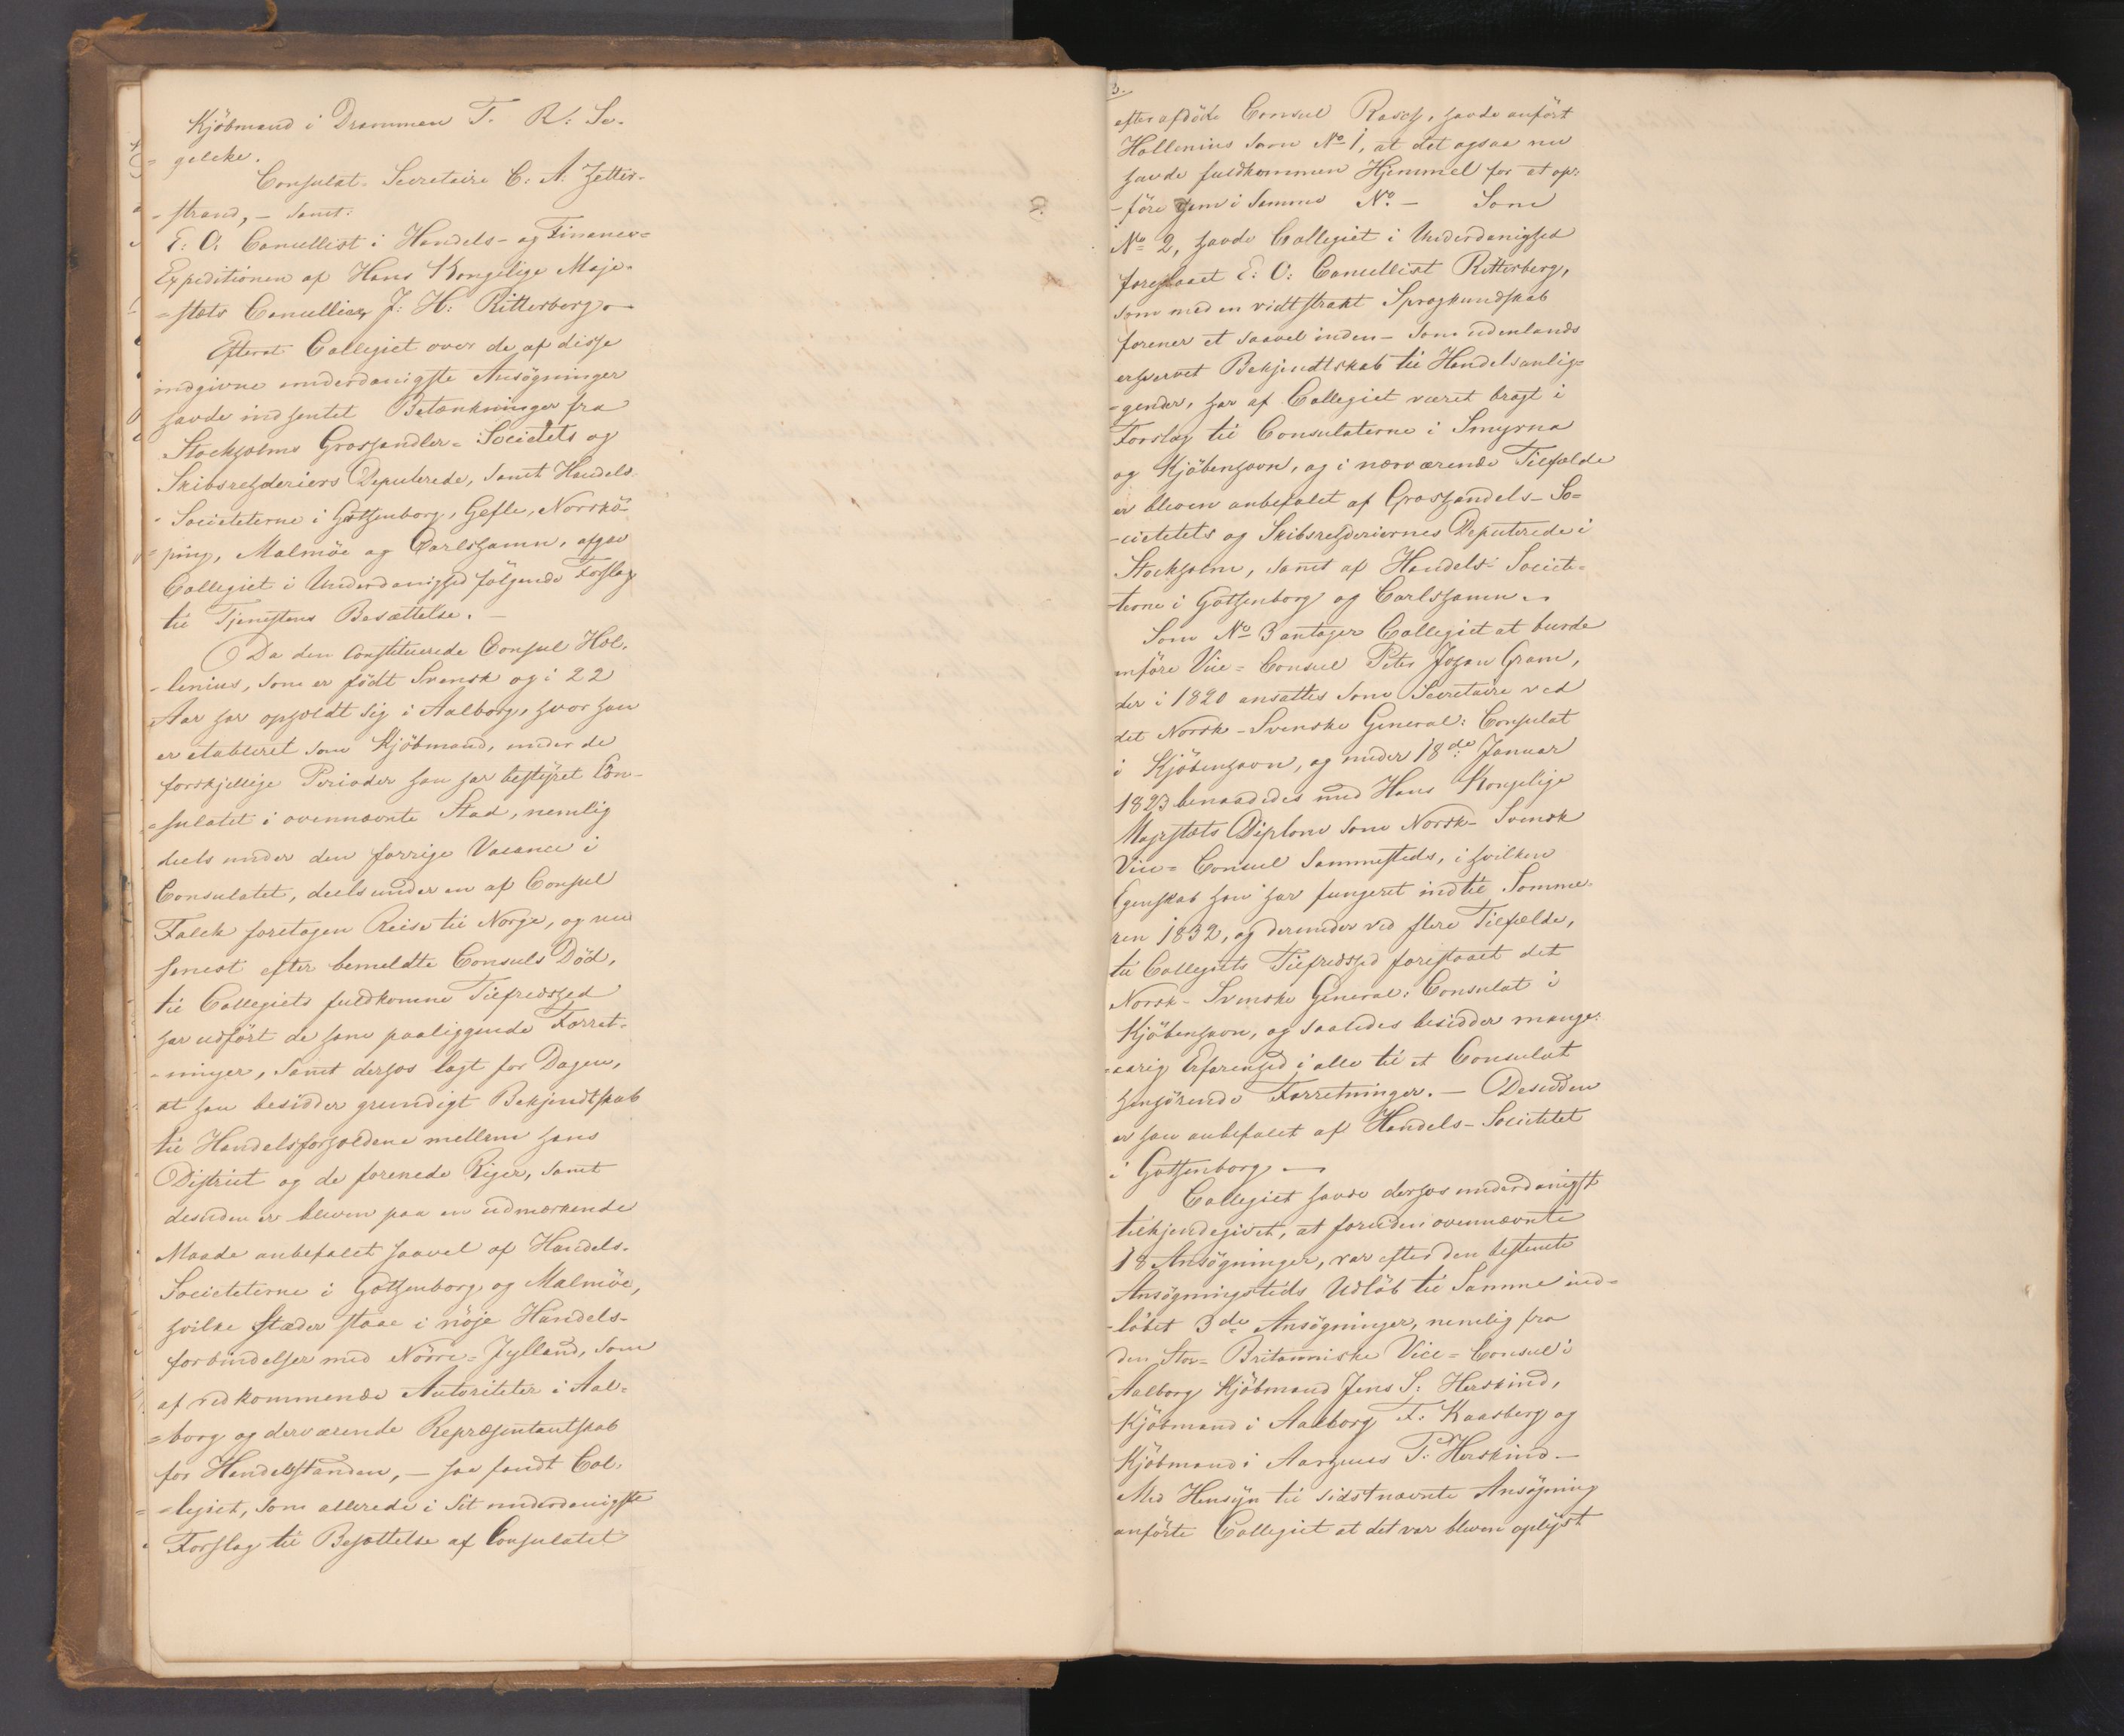 Kjöbmand i Drammen T. R: Se-
=gelcke.
Consulat-Secretaire C: A: Zetter-
-strand, - samt:
E: O: Cancellist i Handels- og Finance=
Expeditionen af Hans Kongelige Maje-
=stæts Cancellier J: H: Ritterberg.
Efterat Collegiet over de af disse
indgivne underdanigste Ansögninger
havde indhentet Betænkninger fra
Stockholms Groshandler-Societets og
Skibsrehderiers Deputerede, samt Handels
-Societeterne i Göthenborg, Gefle, Norrkö-
=ping, Malmöe og Carlshamn, afgav
Collegiet i Underdanighed fölgende Forslag
til Tjenestens Besættelse. -
Da den constituerede Consul Hol-
-lenius, som er födt Svensk og i 22
Aar har opholdt sig i Aalborg, hvor han
er etableret som Kjöbmand, under de
forskjellige Perioder han har bestyret Con-
=sulatet i ovennævnte Stad, nemlig
deels under den forrige Vacance i
Consulatet, deels under en af Consul
Falck foretagen Reise til Norge, og nu
senest efter bemeldte Consuls Död,
til Collegiets fuldkomne Tilfredshed
har udfört de ham paaliggende Forret-
-ninger, samt derhos lagt for Dagen,
at han besidder grundigt Bekjendtskab
til Handelsforholdene mellem hans
District og de forenede Riger, samt
desuden er bleven paa en udmærkende
Maade anbefalet saavel af Handels-
Societeterne i Göthenborg og Malmöe,
hvilke Stæder staae i nöje Handels-
forbindelser med Nörre-Jylland, som
af vedkommende Autoriteter i Aal-
=borg og derværende Repræsentantskab
for Handelsstanden, - saa fandt Col-
=legiet, som allerede i sit underdanigste
Forslag til Besættelse af Consulatet
3.
efter afdöde Consul Rasch, havde anfört
Hollenius som No 1, at det ogsaa nu
havde fuldkommen Hjemmel for at op-
-före ham i samme No. - Som
No 2, havde Collegiet i Underdanighed
foreslaaet E: O: Cancellist Ritterberg,
som med en vidtstrakt Sprogkundskab
forener et saavel inden- som udenlands
erhvervet Bekjendtskab til Handelsanlig-
-gender, har af Collegiet været bragt i
Forslag til Consulaterne i Smyrna
og Kjöbenhavn, og i nærværende Tilfælde
er bleven anbefalet af Groshandels-So=
-cietetets og Skibsrehderiernes Deputerede i
Stockholm, samt af Handels-Societe-
-terne i Göthenborg og Carlshamn. -
Som No 3 antager Collegiet at burde
anföre Vice-Consul Peter Johan Gram,
der i 1820 ansattes som Secretaire ved
det Norsk-Svenske General-Consulat
i Kjöbenhavn, og under 18de Januar
1823 benaadedes med Hans Kongelige
Majestæts Diplom som Norsk-Svensk
Vice-Consul sammesteds, i hvilken
Egenskab han har fungeret indtil Somme-
ren 1832, og derunder ved flere Tilfælde,
til Collegiets Tilfredshed forestaaet det
Norsk-Svenske General-Consulat i
Kjöbenhavn, og saaledes besidder mange-
-aarig Erfarenhed i alle til et Consulat
henhörende Forretninger. - Desudden
er han anbefalet af Handels-Societetet
i Göthenborg. -
Collegiet havde derhos underdanigst
tilkjendegivet, at foruden ovennævnte
18 Ansögninger, var efter den bestemte
Ansögningstids Udlöb til samme ind-
-löbet 3de Ansögninger, nemlig fra
den Stor-Britanniske Vice-Consul i
Aalborg Kjöbmand Jens S: Herskind,
Kjöbmand i Aalborg F: Kaasberg og
Kjöbmand i Aarhuus P: Herskind. -
Med Hensyn til sidstnævnte Ansögning
anförte Collegiet at det var bleven oplyst